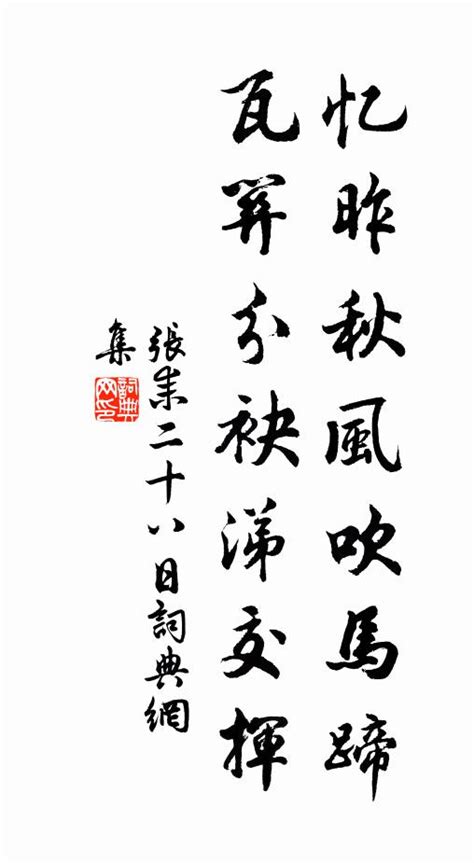 忆昨秋風吹馬蹄
瓦關分袂涕交揮
張耒二十八日詞典網
集
詞典网印